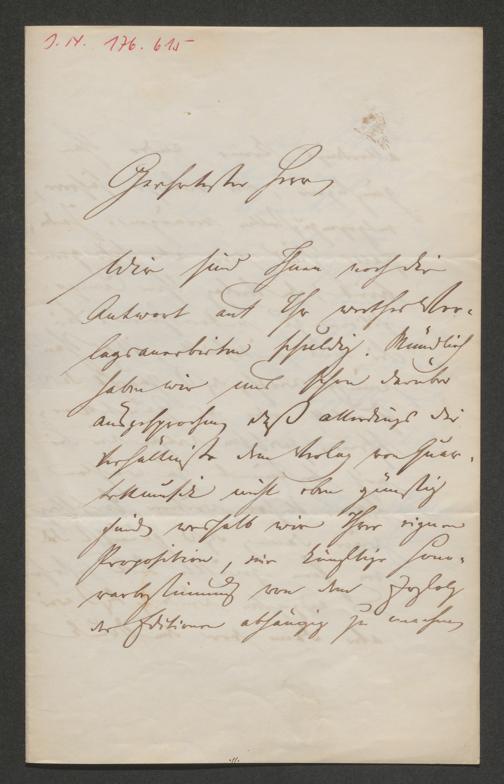 J. N. 176.615
Geehrtester Herr
Wir sind Ihnen noch die
Antwort auf Ihr werthes Ver-
lagsanerbieten schuldig. Mündlich
haben wir uns schon darüber
ausgesprochen daß allerdings die
Verhältnisse dem Verlag von
nicht eben günstig
sind, weshalb wir Ihre eigene
Proposition, die künftige Hono-
rarbestimmung von dem Erfolg
der Editionen abhängig zu machen